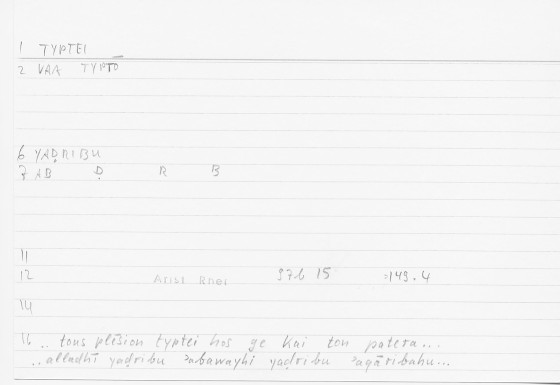 1 TYPTEI
2 VAA TYPTO
6 YAḌRIBU
7 AB Ḍ R B
11
12 Arist Rhei 97.6 15 =149.4
14
16 .. tous plēsion typtei hos ge kai ton patera...
.. alladhī yaḍribu ʾabawayhi yaḍribu ʾaqāribahu...